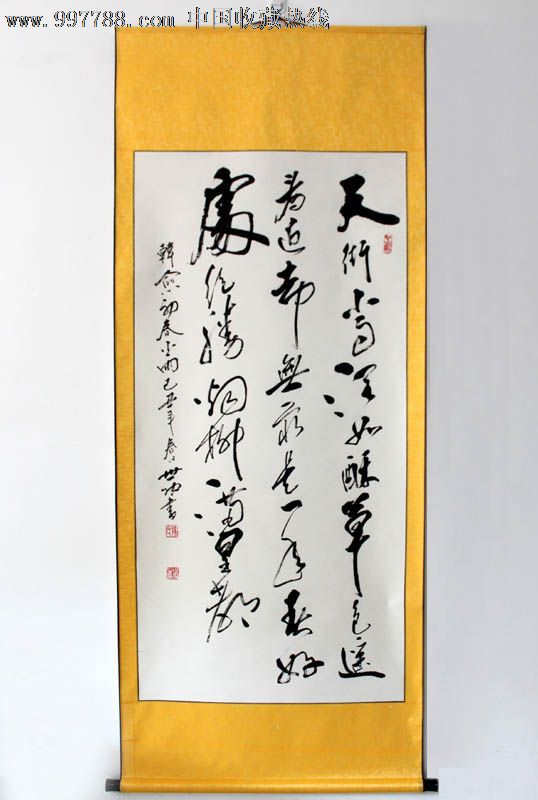 www.997788.com 中国收藏热线
天街小雨润如酥草色遥
看近却無最是一年春好
處绝勝烟柳满皇都
韓愈初春小雨己丑年春世功書